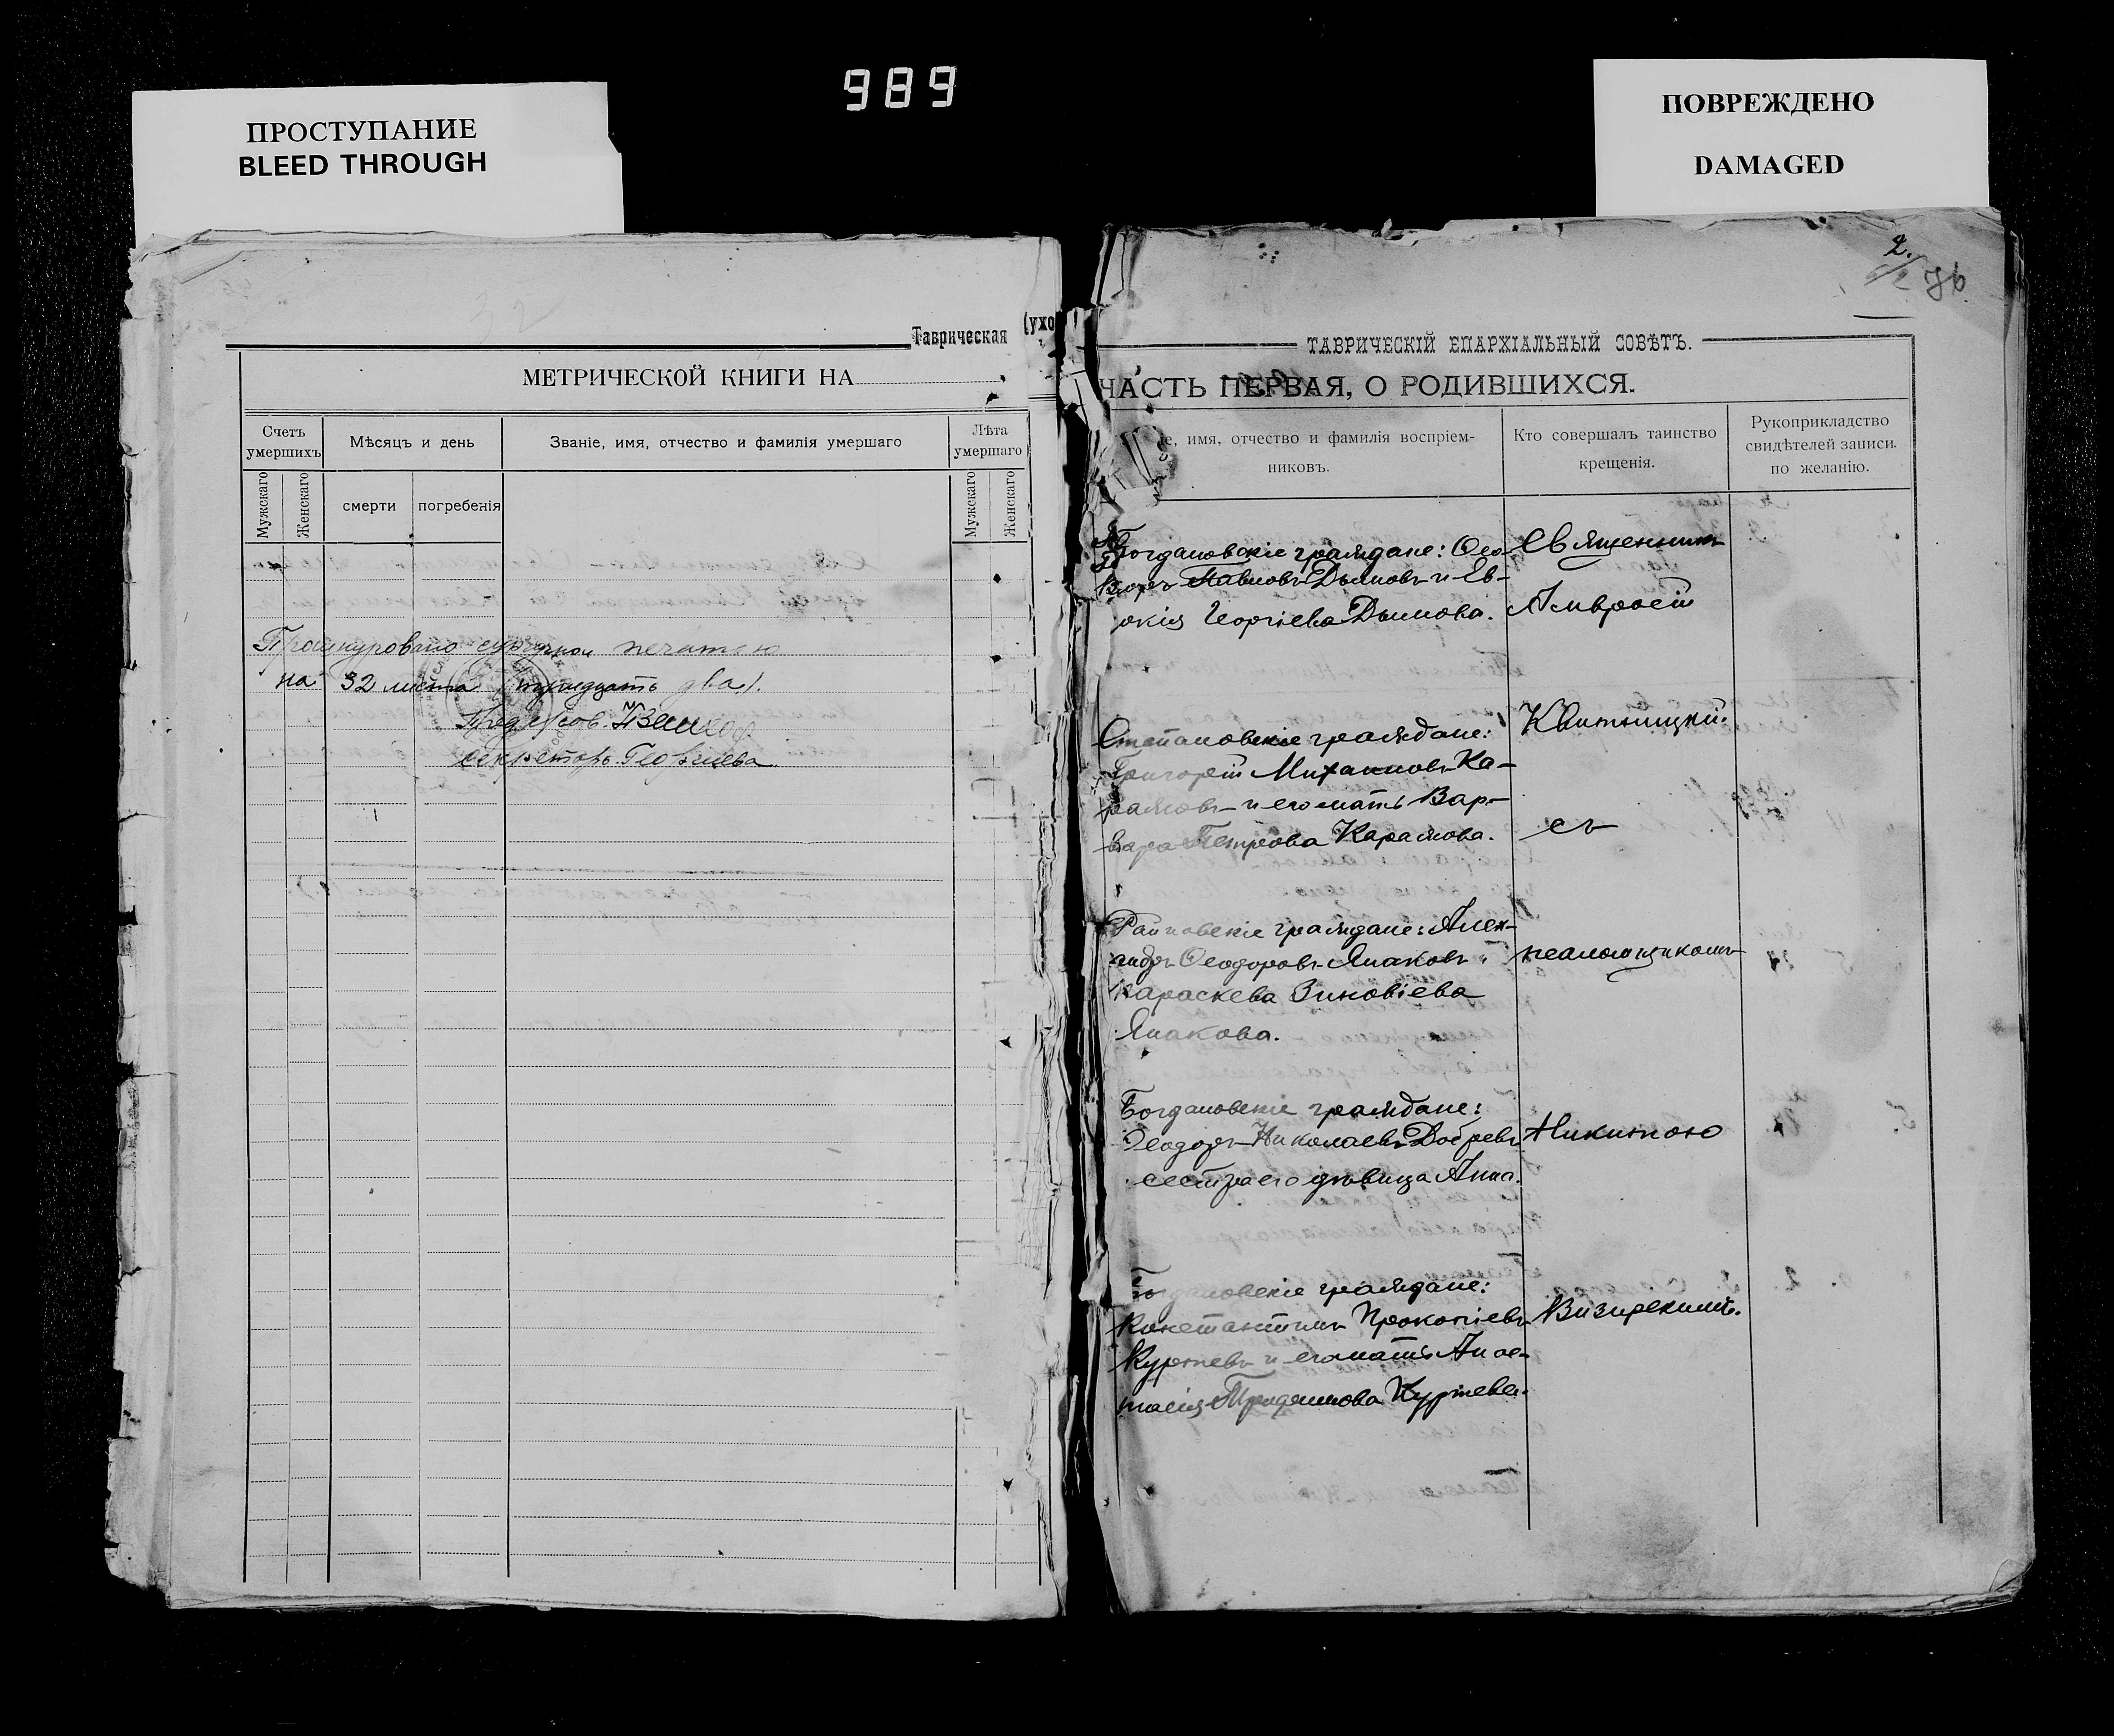 989
ПРОСТУПАНИЕ
BLEED THROUGH
ПОВРЕЖДЕНО
DAMAGED
Таврическая
(ухо
МЕТРИЧЕСКОЙ КНИГИ НА
Счетъ умершихъ
Мѣсяцъ и день
Званіе, имя, отчество и фамилія умершаго
Лѣта умершаго
Мужскаго
Женскаго
смерти
погребенія
Мужскаго
Женскаго
Прошнуровано сургучной печатью
на 32 листа (тридцать два).
Секретарь Георгиева
2.
ТАВРИЧЕСКІЙ ЕПАРХІАЛЬНЫЙ СОВѢТЪ.
ЧАСТЬ ПЕРВАЯ, О РОДИВШИХСЯ.
е, имя, отчество и фамилія воспріем-
никовъ.
Кто совершалъ таинство
крещенія.
Рукоприкладство
свидѣтелей записи
по желанію.
Богдановскіе граждане: Ѳео-
доръ Павловъ Дымовъ и Ев-
окія Георгіева Дымова.
Священникъ
Амвросій
Степановскіе граждане:
Григорій Михаиловъ Ка-
рамовъ и его мать Вар-
вара Петрова Карамова.
Квитницкій
съ
Райновскіе граждане: Алек-
андръ Ѳеодоровъ Янаковъ
Параскева Зиновіева
Янакова.
псаломщикомъ
Богдановскіе граждане:
Ѳеодоръ Николаевъ Добревъ
сестра его дѣвица Анна.
Никитою
Богдановскіе граждане:
Константинъ Прокопіевъ
Куртевъ и его мать Анас-
тасія Куртева.
Визирскимъ.